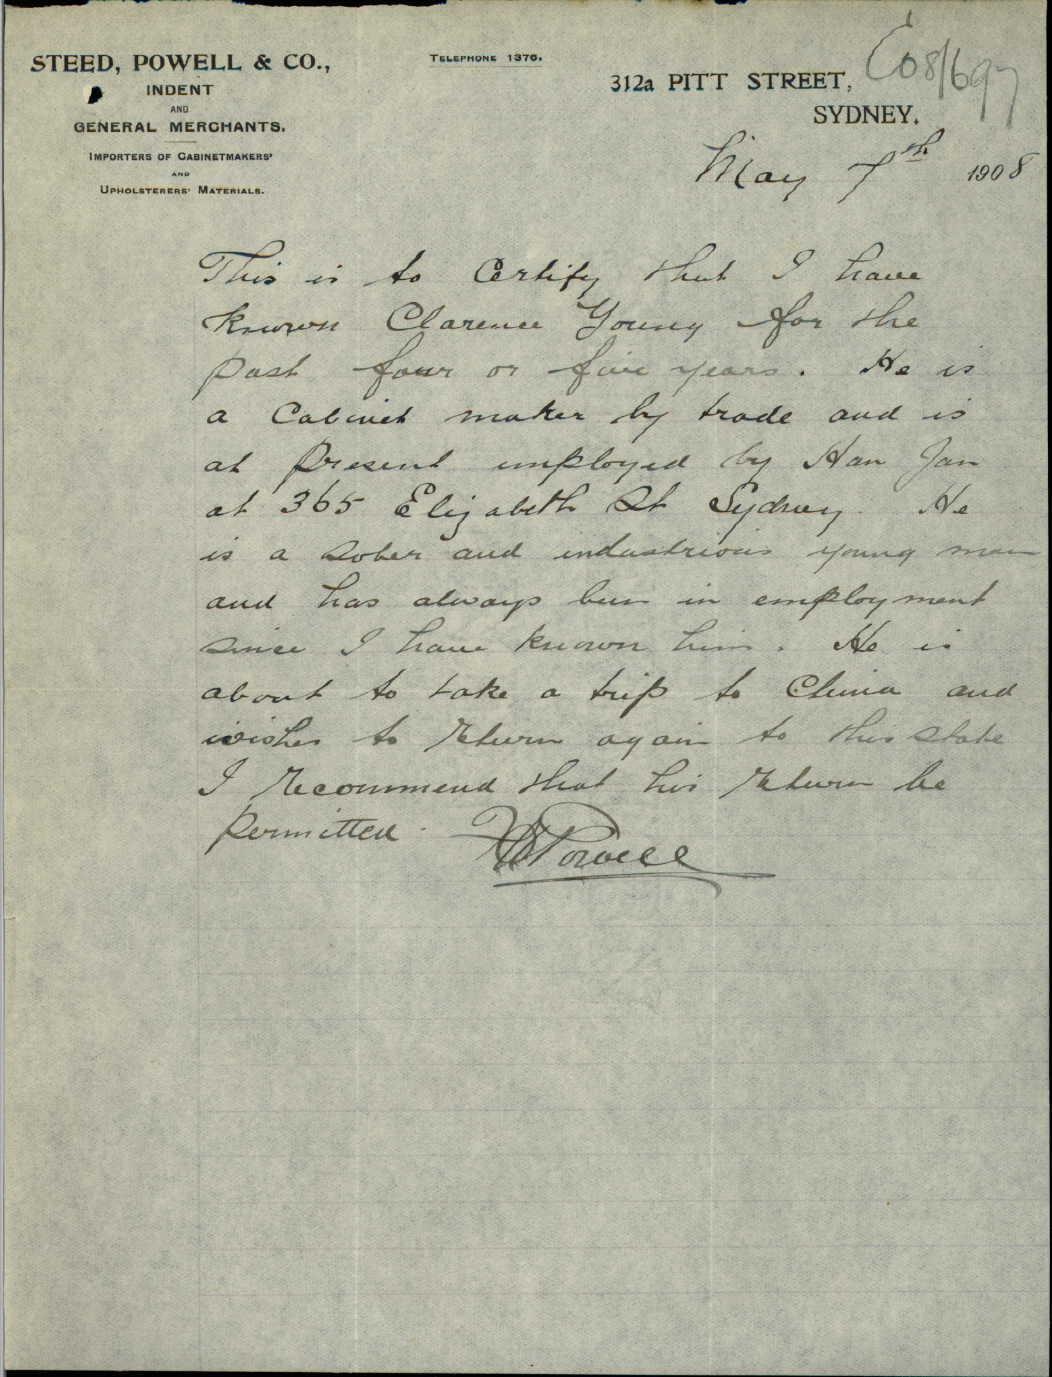 STEED, POWELL & CO.,
INDENT
AND
GENERAL MERCHANTS.
IMPORTERS OF CABINETMAKERS'
AND
UPHOLSTERERS' MATERIALS.
TELEPHONE 1376.
C08/697
312a PITT STREET,
SYDNEY.
May 7th 1908
This is to Certify that I have
known Clarence Young for the
past four or five years. He is
a Cabinet maker by trade and is
at present employed by Han Jan
at 365 Elizabeth St Sydney. He
is a sober and industrious young man
and has always been in employment
since I have known him. He is
about to take a trip to China and
wishes to return again to this state
I recommend that his return be
permitted.
Powell